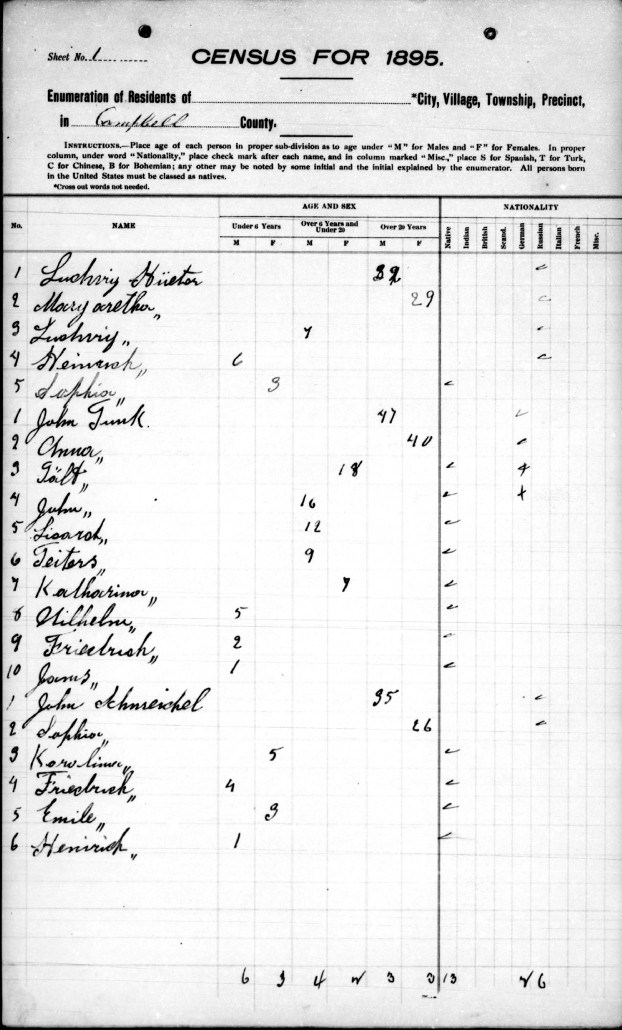 Sheet No. 1
CENSUS FOR 1895.
Enumeration of Residents of *City, Village, Township, Precinct,
in Campbell County.
INSTRUCTIONS.—Place age of each person in proper sub-division as to age under "M" for Males and "F" for Females. In proper
column, under word "Nationality," place check mark after each name, and in column marked "Misc.," place S for Spanish, T for Turk,
C for Chinese, B for Bohemian; any other may be noted by some initial and the initial explained by the enumerator. All persons born
in the United States must be classed as natives.
*Cross out words not needed.
AGE AND SEX NATIONALITY
No. NAME Under 6 Years Over 6 Years and Under 20 Over 20 Years Native Indian British Scand. German Russian Italian French Misc.
M F M F M F
1 Ludwig 32
2 Margaretha „ 29
3 Ludwig „ 7
4 Heinrich „ 6
5 Sophia „ 3
1 John Funk. 47
2 Anna „ 40
3 „ 18
4 John „ 16
5 „ 12
6 „ 9
7 Katharina „ 7
8 Wilhelm „ 5
9 Friedrich „ 2
10 „ 1
1 John 35
2 Sophia „ 26
3 Karolina „ 5
4 Friedrich „ 4
5 Emile „ 3
6 Heinrich „ 1
6 3 4 2 3 3 13 2 6